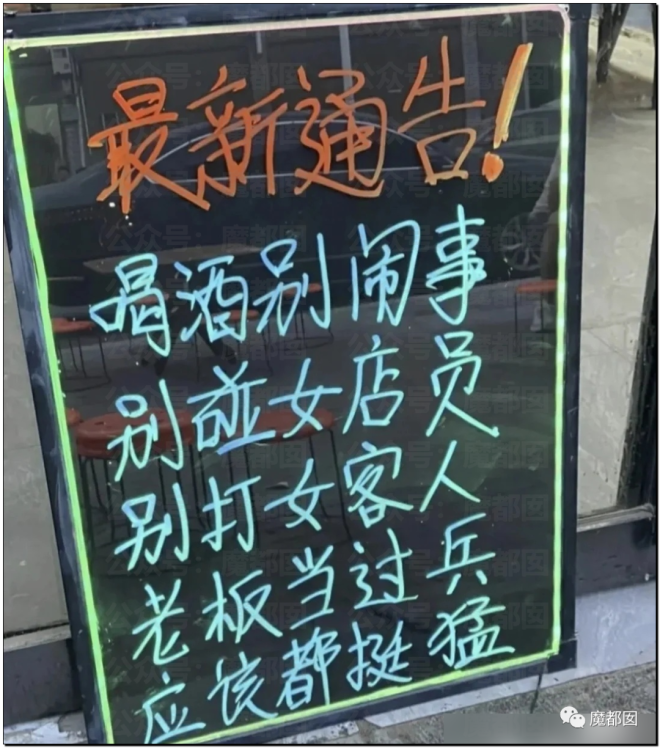 最新通告!
喝酒别闹事
别碰女店员
别打女客人
老板当过兵
应该都挺猛
魔都囡